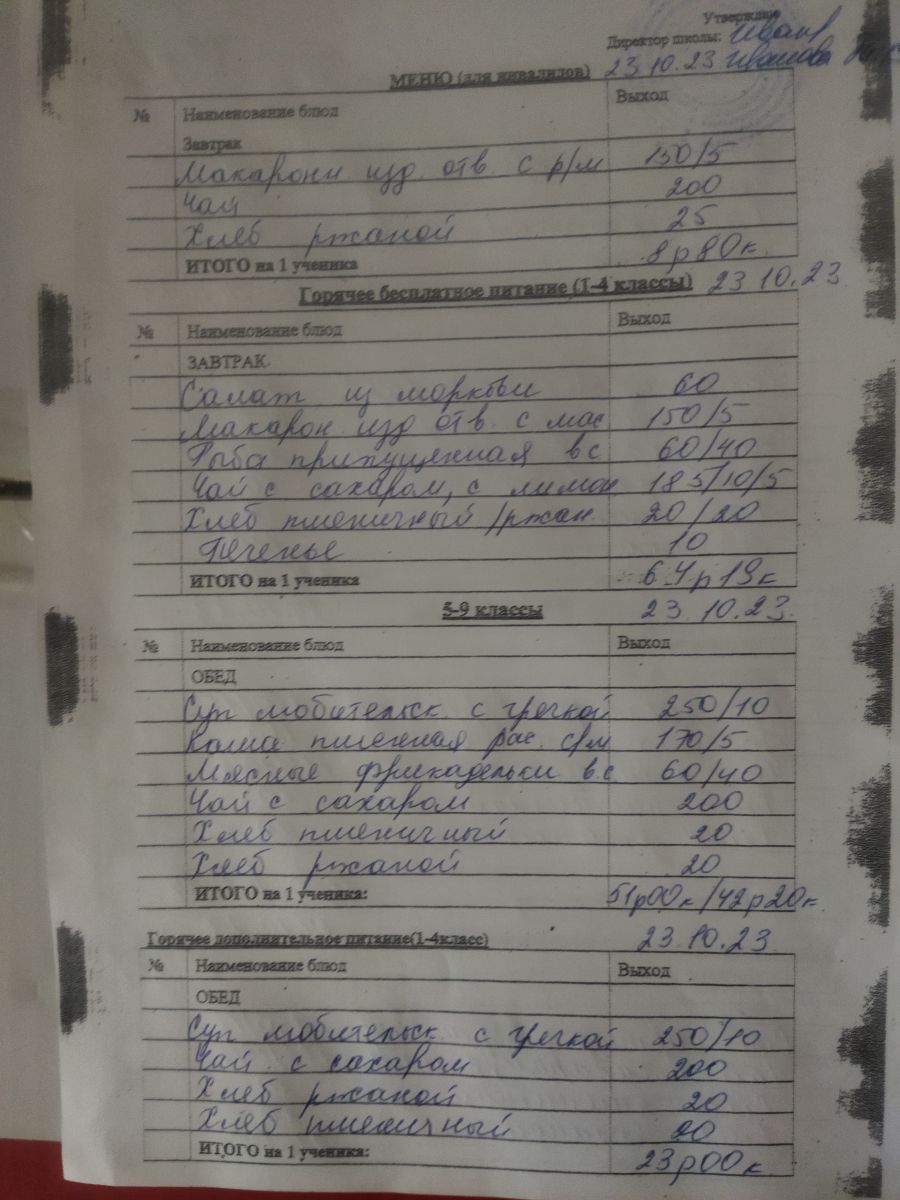 Утверждаю
Директор школы:
23.10.23 Иванова
МЕНЮ (для инвалидов)
№ Наименование блюд Выход
Завтрак
Макарони изд отв. с р/м 150/5
Чай 200
Хлеб ржаной 25
ИТОГО на 1 ученика 8р80к.
Горячее бесплатное питание (1-4 классы) 23.10.23
№ Наименование блюд Выход
ЗАВТРАК
Салат из моркови 60
Макарон изд отв. с мас 150/5
Рыба припущенная в с 60/40
Чай с сахаром, с лимон 185/10/5
Хлеб пшеничный /ржан. 20/20
Печенье 10
ИТОГО на 1 ученика 64р19к
5-9 классы 23.10.23.
№ Наименование блюд Выход
ОБЕД
Суп любительск. с гречкой 250/10
Каша пшенная рас. с/м 170/5
Мясные фрикадельки в.с 60/40
Чай с сахаром 200
Хлеб пшеничный 20
Хлеб ржаной 20
ИТОГО на 1 ученика: 51р00к/42р20к
Горячее дополнительное питание(1-4класс) 23.10.23
№ Наименование блюд Выход
ОБЕД
Суп любительск. с гречкой 250/10
Чай с сахаром 200
Хлеб ржаной 20
Хлеб пшеничный 20
ИТОГО на 1 ученика: 23р00к